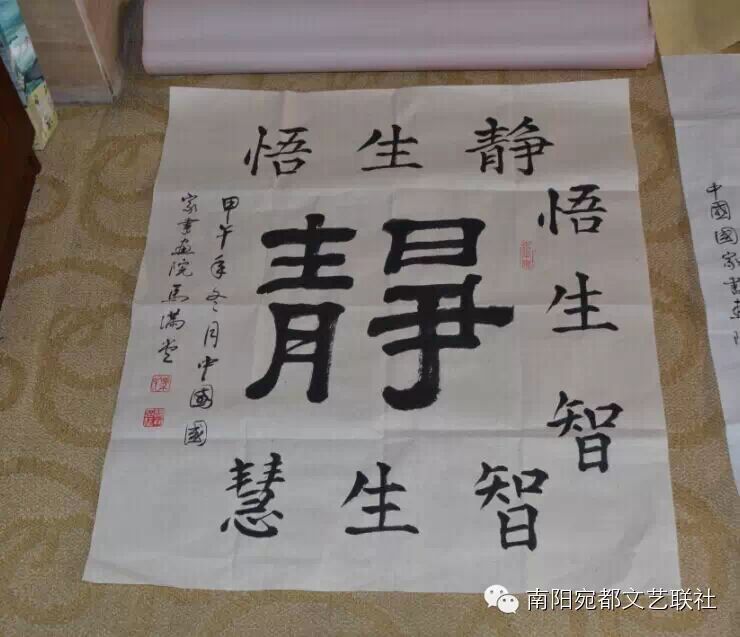 静生悟
悟生智
智生慧
靜
甲午年冬月中國國
家書画院马满堂
中國國家書画
南阳宛都文艺联社